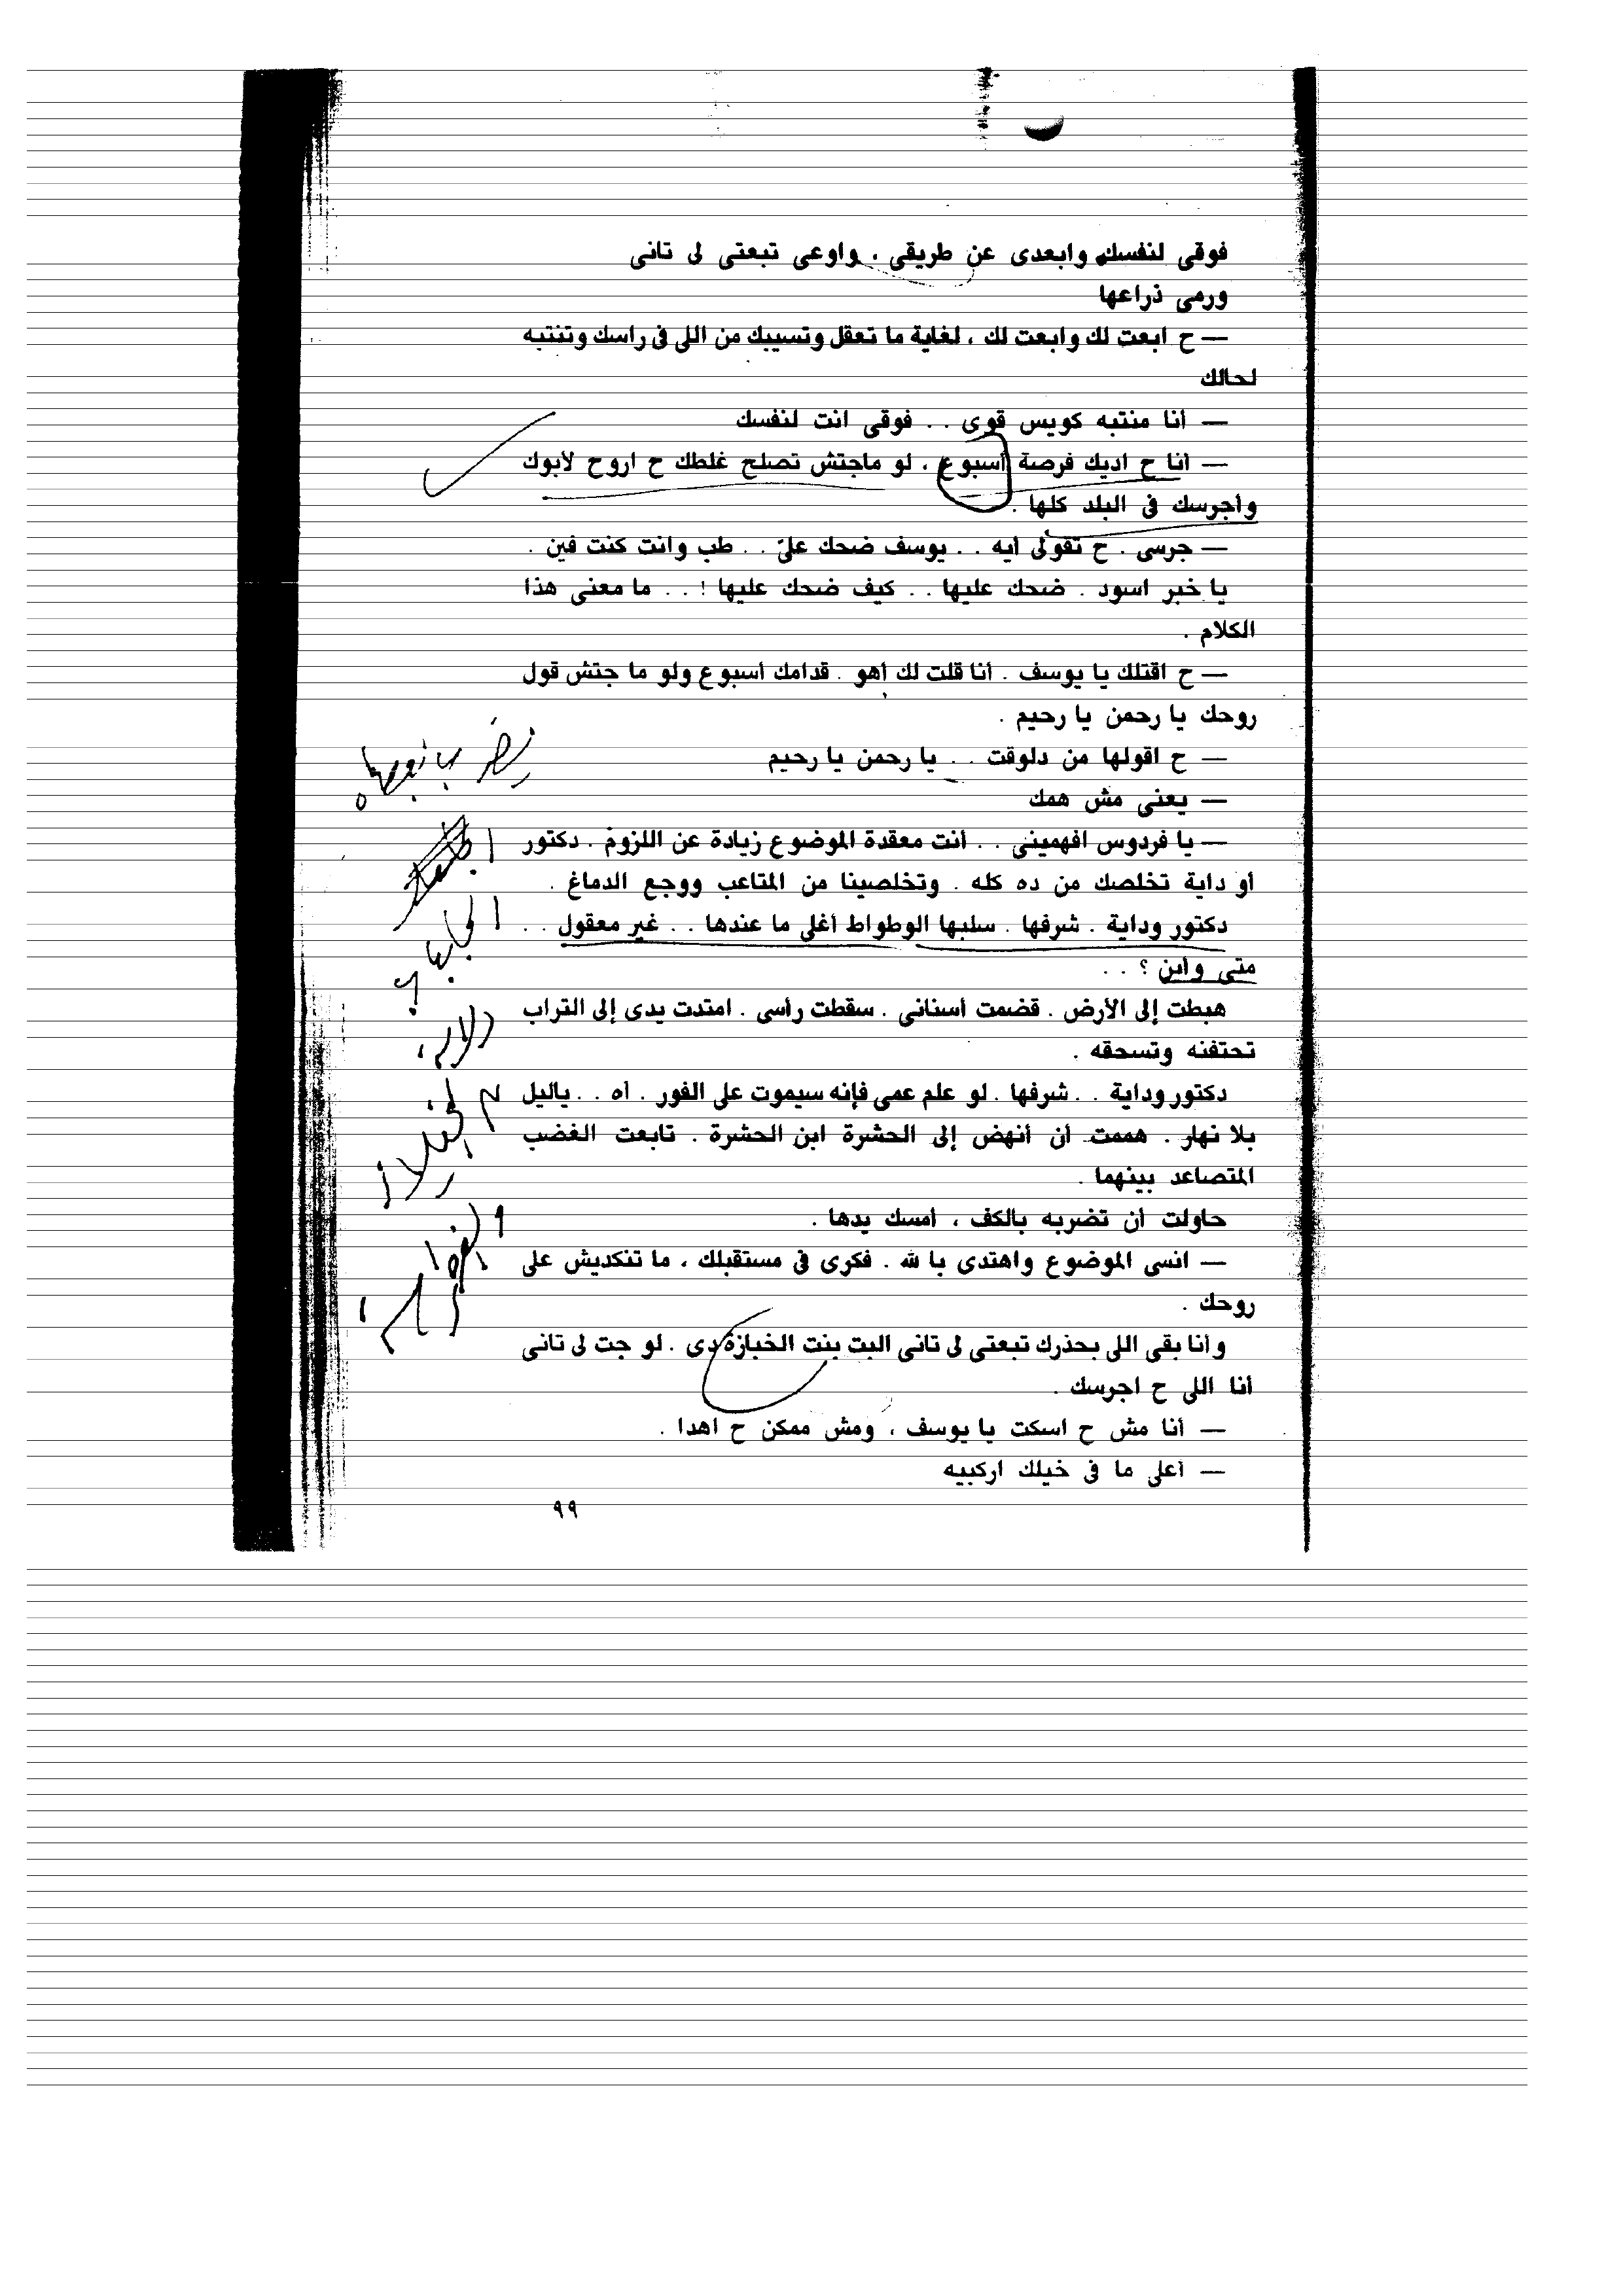 فوقى لنفسك وابعدى عن طريقى ، واوعى تبعتى لى تانى
ورمى ذراعها
— ح ابعت لك وابعت لك ، لغاية ما تعقل وتسيبك من اللى فى راسك وتنتبه
لحالك
— أنا منتبه كويس قوى . . فوقى انت لنفسك
— أنا ح اديك فرصة أسبوع ، لو ماجتش تصلح غلطك ح اروح لأبوك
وأجرسك فى البلد كلها .
— جرسى . ح تقولى أيه . . يوسف ضحك علىّ . . طب وانت كنت فين .
يا خبر اسود . ضحك عليها . . كيف ضحك عليها ! . . ما معنى هذا
الكلام .
— ح اقتلك يا يوسف . أنا قلت لك أهو . قدامك أسبوع ولو ما جتش قول
روحك يا رحمن يا رحيم .
— ح اقولها من دلوقت . . يا رحمن يا رحيم
— يعنى مش همك
— يا فردوس افهمينى . . أنت معقدة الموضوع زيادة عن اللزوم . دكتور
أو داية تخلصك من ده كله . وتخلصينا من المتاعب ووجع الدماغ .
دكتور وداية . شرفها . سلبها الوطواط أغلى ما عندها . . غير معقول . .
متى وأين ؟ . .
هبطت إلى الأرض . قضمت أسنانى . سقطت رأسى . امتدت يدى إلى التراب
تحتفنه وتسحقه .
دكتور وداية . . شرفها . لو علم عمى فإنه سيموت على الفور . أه . . ياليل
بلا نهار . هممت أن أنهض إلى الحشرة ابن الحشرة . تابعت الغضب
المتصاعد بينهما .
حاولت أن تضربه بالكف ، أمسك يدها .
— انسى الموضوع واهتدى با لله . فكرى فى مستقبلك ، ما تنكديش على
روحك .
وأنا بقى اللى بحذرك تبعتى لى تانى البت بنت الخبازة دى . لو جت لى تانى
أنا اللى ح اجرسك .
— أنا مش ح اسكت يا يوسف ، ومش ممكن ح اهدا .
— أعلى ما فى خيلك اركبيه
٩٩